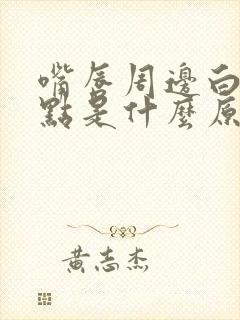 嘴唇周邊白
點是什麼原
黃志杰